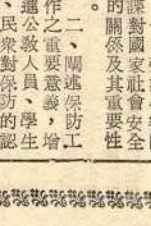 諜對國家社會安全
的關係及其重要性
。
二、闡述保防工
作之重要意義，增
進公教人員、學生
、民衆對保防的認